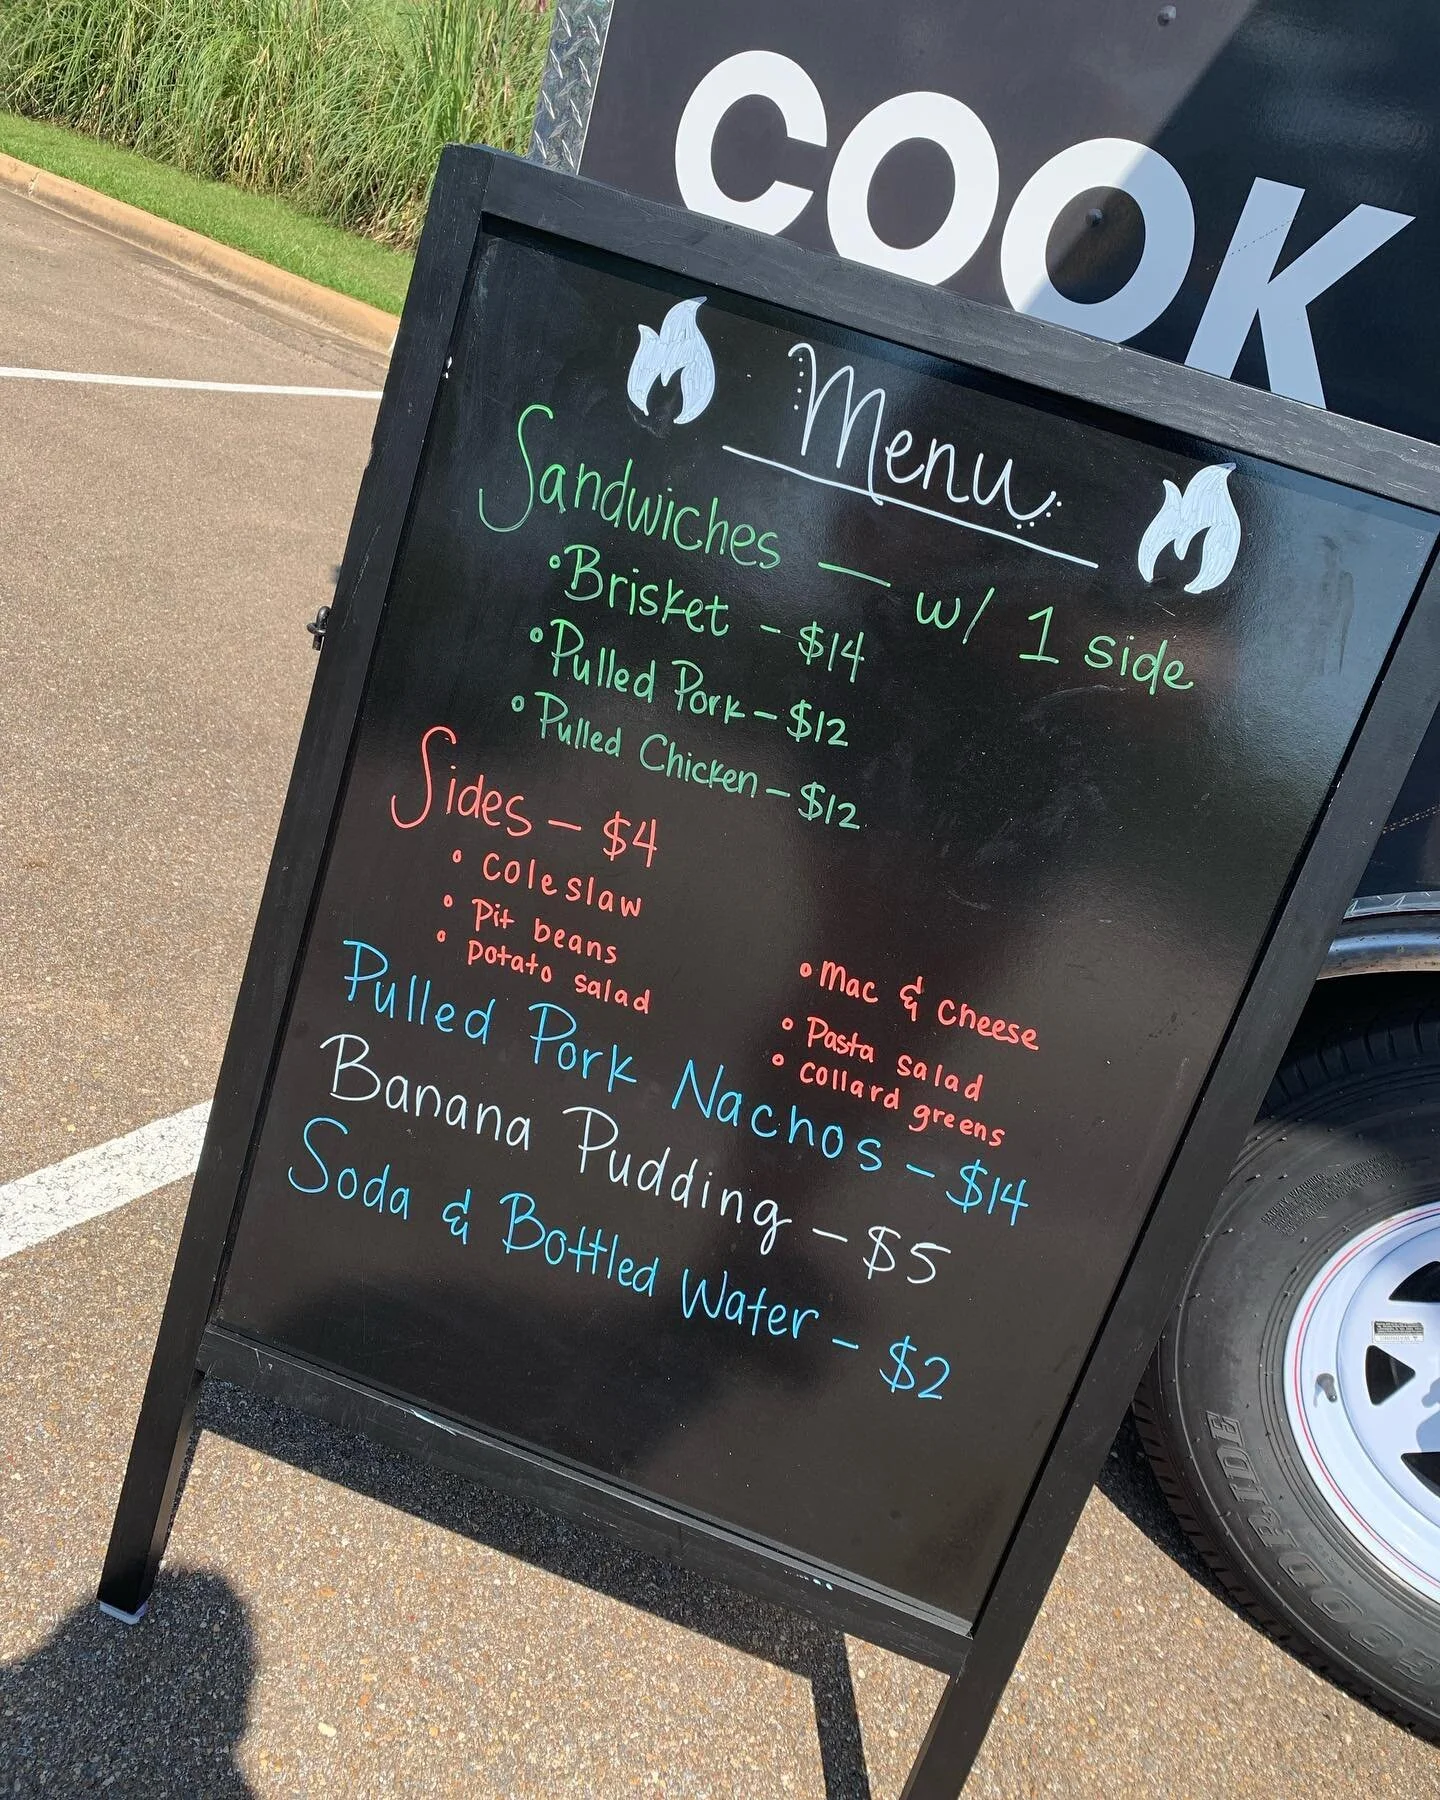 COOK
Menu
Sandwiches — w/ 1 side
• Brisket - $14
• Pulled Pork - $12
• Pulled Chicken - $12
Sides - $4
• Coleslaw
• Pit beans
• Potato salad
• Mac & Cheese
• Pasta salad
• Collard greens
Pulled Pork Nachos - $14
Banana Pudding - $5
Soda & Bottled Water - $2